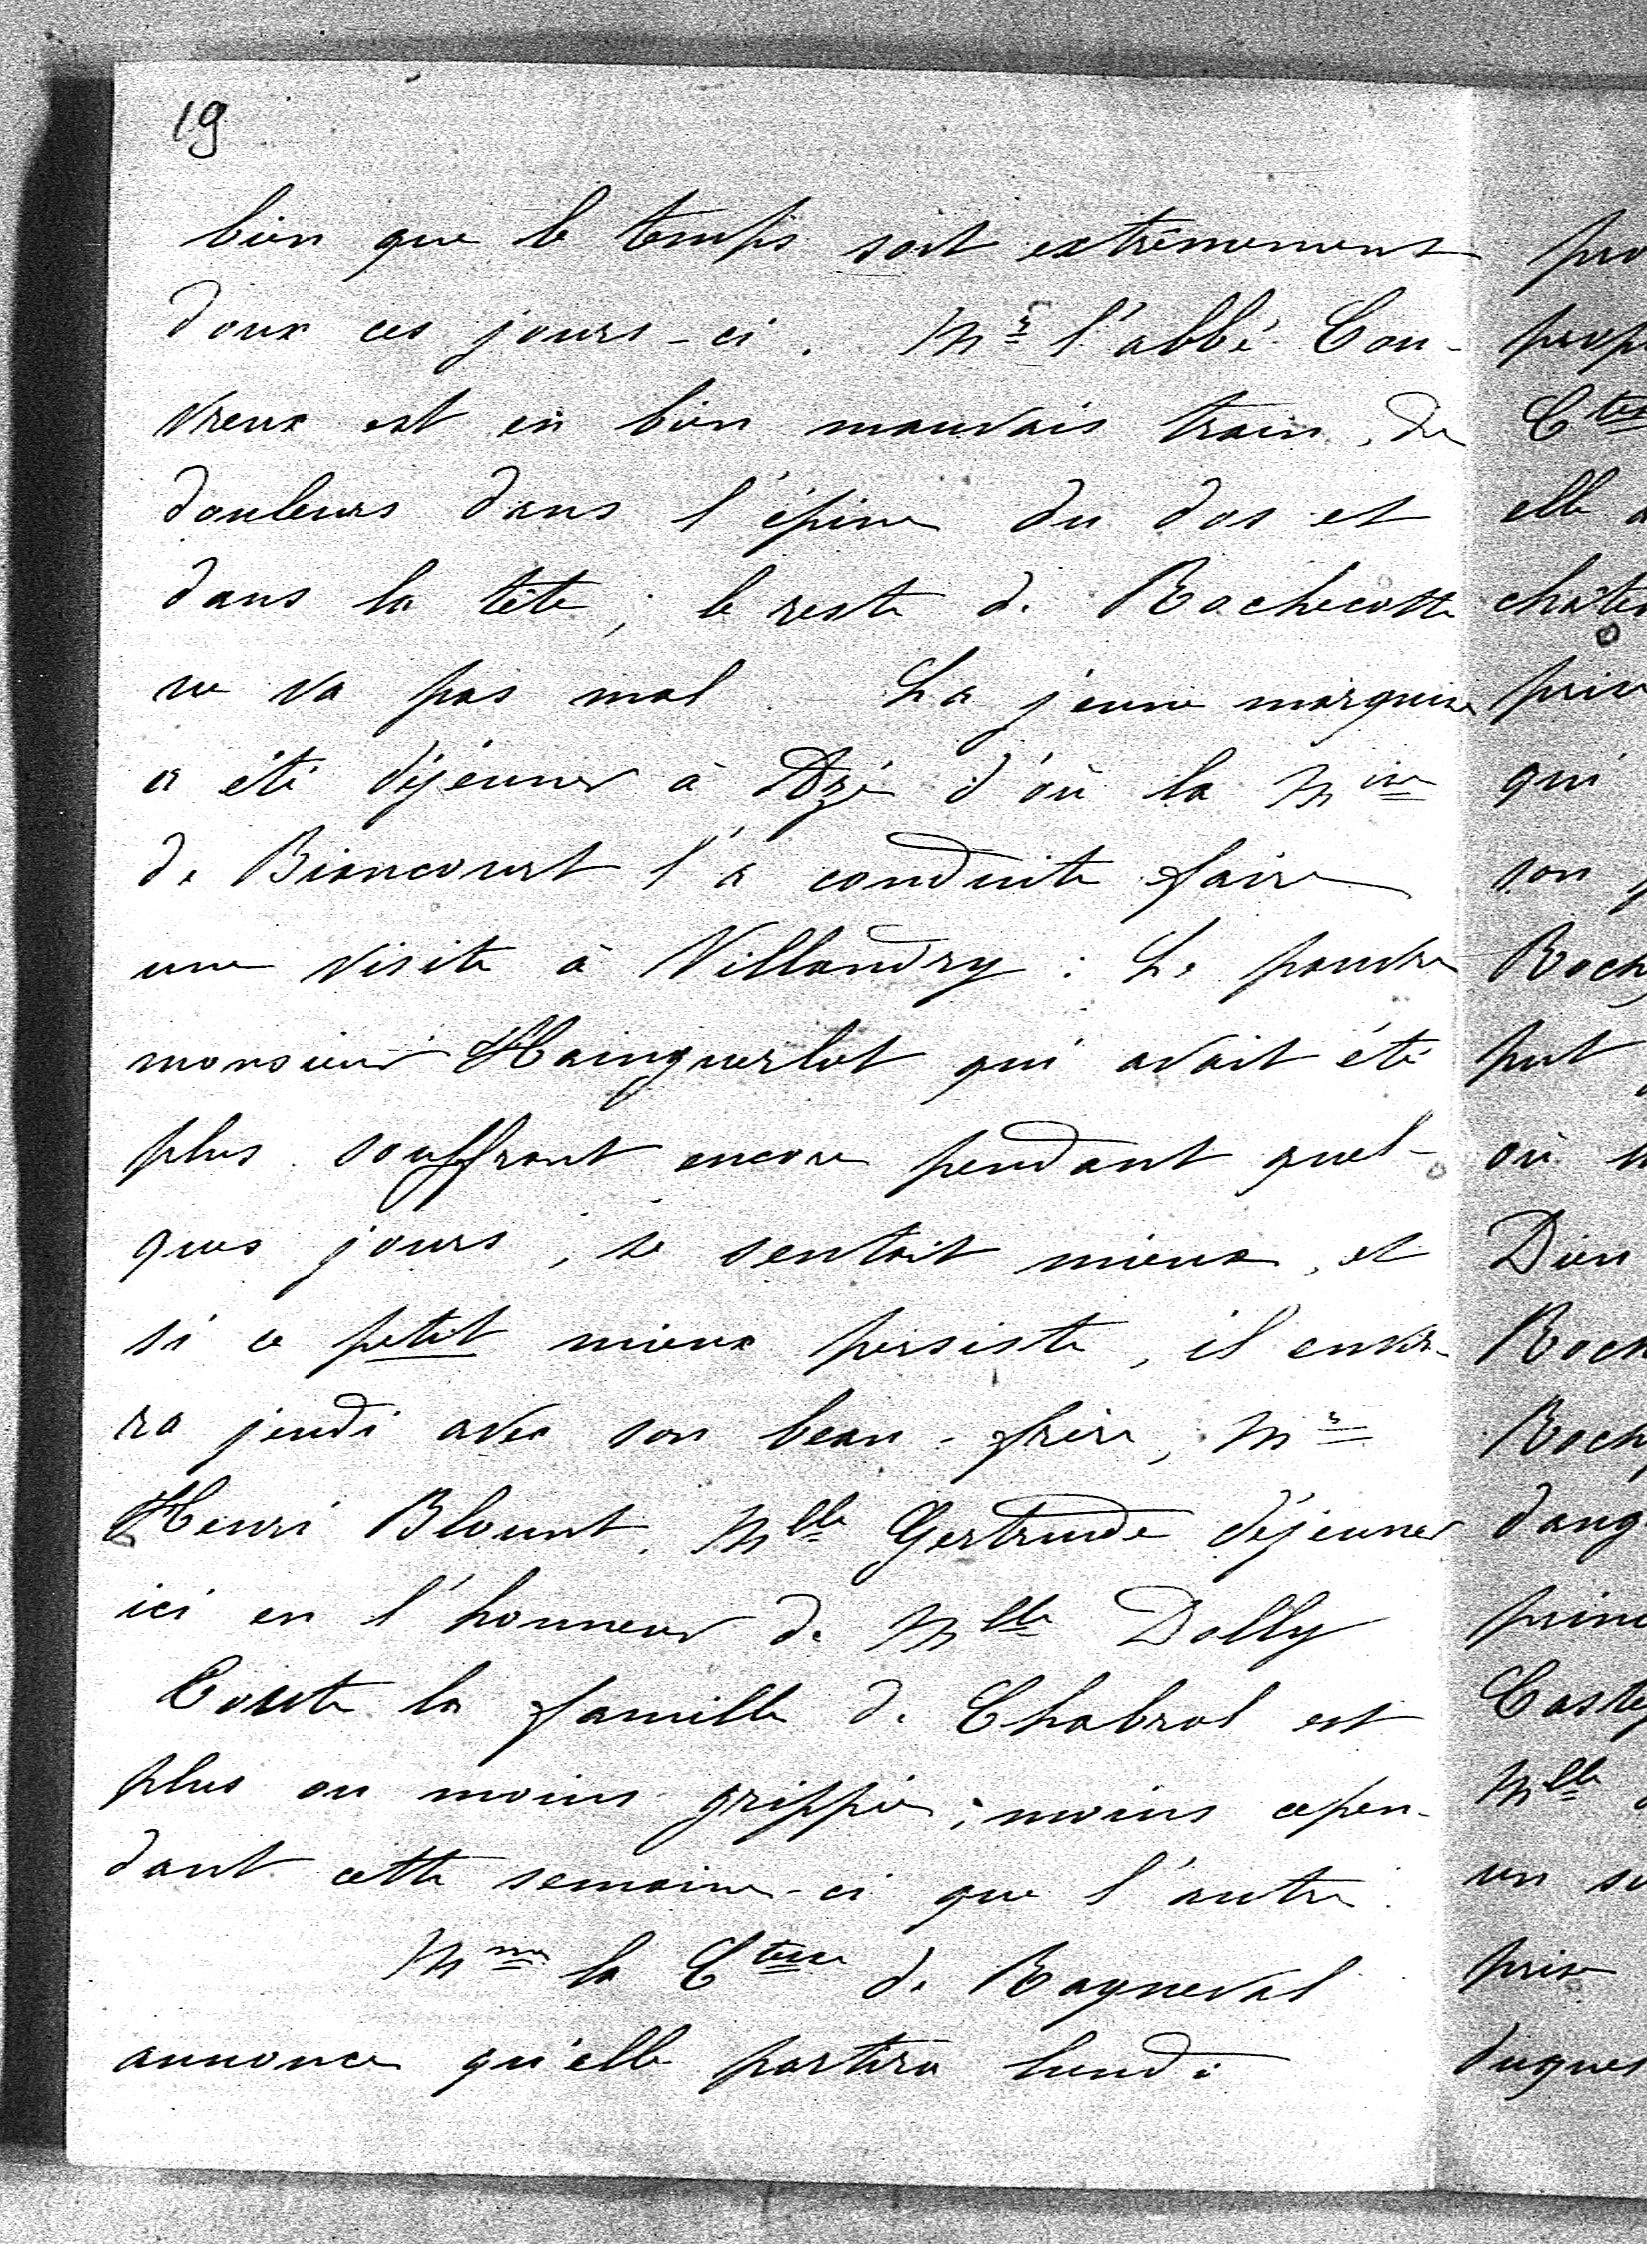 19
bien que le temps soit extrêmement
doux ces jours-ci. Mr l'abbé Cou-
vreux est en bien mauvais train, de
douleurs dans l'épine du dos et
dans la tête ; le reste de Rochecotte
ne va pas mal. La jeune marquise
a été déjeuner à Azé d'où la Mise
de Biancourt l'a conduite faire
une visite à Villandry : Le pauvre
monsieur Hainguerlot qui avait été
plus souffrant encore pendant quel-
ques jours, se sentait mieux, et
si ce petit mieux persiste, il enver-
ra jeudi avec son beau-frère, Mr
Henri Blount, Mlle Gertrude déjeuner
ici en l'honneur de Mlle Dolly
Toute la famille de Chabrol est
plus ou moins grippée ; moins cepen-
dant cette semaine-ci que l'autre.
Mme la Ctesse de Rayneval
annonce qu'elle partira lundi
elle
qui
son
put
où
Dieu
Mlle
un